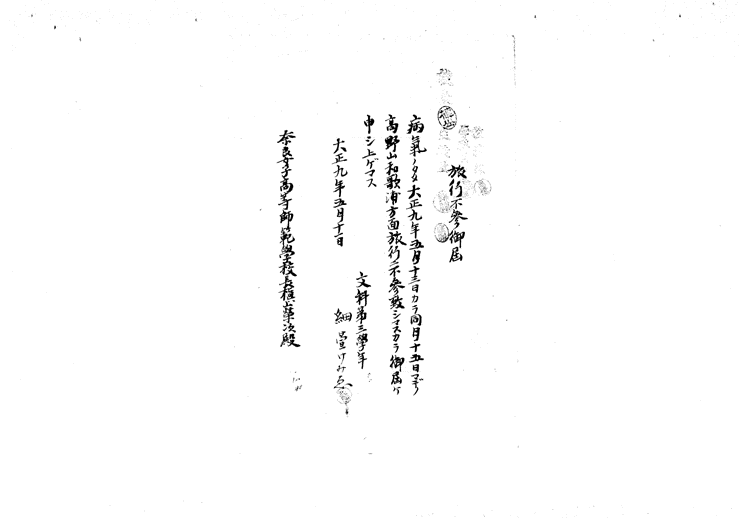 旅行不参御届
病氣ノタメ大正九年五月十三日カラ同月十五日マデノ
高野山和歌浦方面旅行ニ不参致シマスカラ御届ケ
申シ上ゲマス
大正九年五月十二日
文科第三學年
細 けみゑ
奈良女子高等師範學校長槇山榮次殿